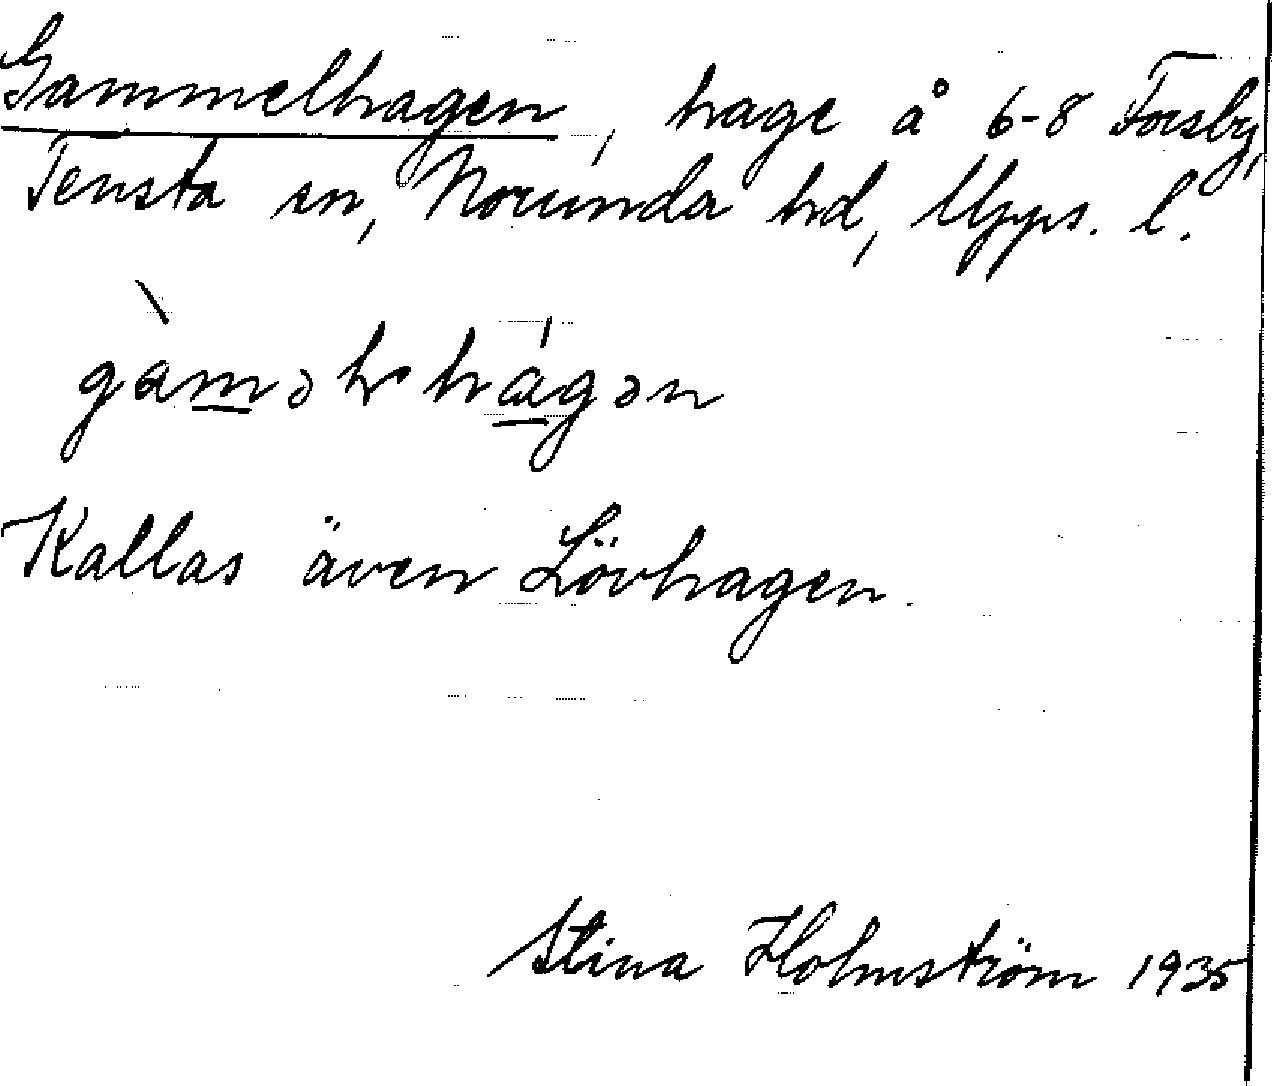 Gammelhagen, hage å 6-8 Forsby,
Tensta sn, Norunda hd, Upps. l.
Kallas även Lövhagen.
Stina Holmström 1935